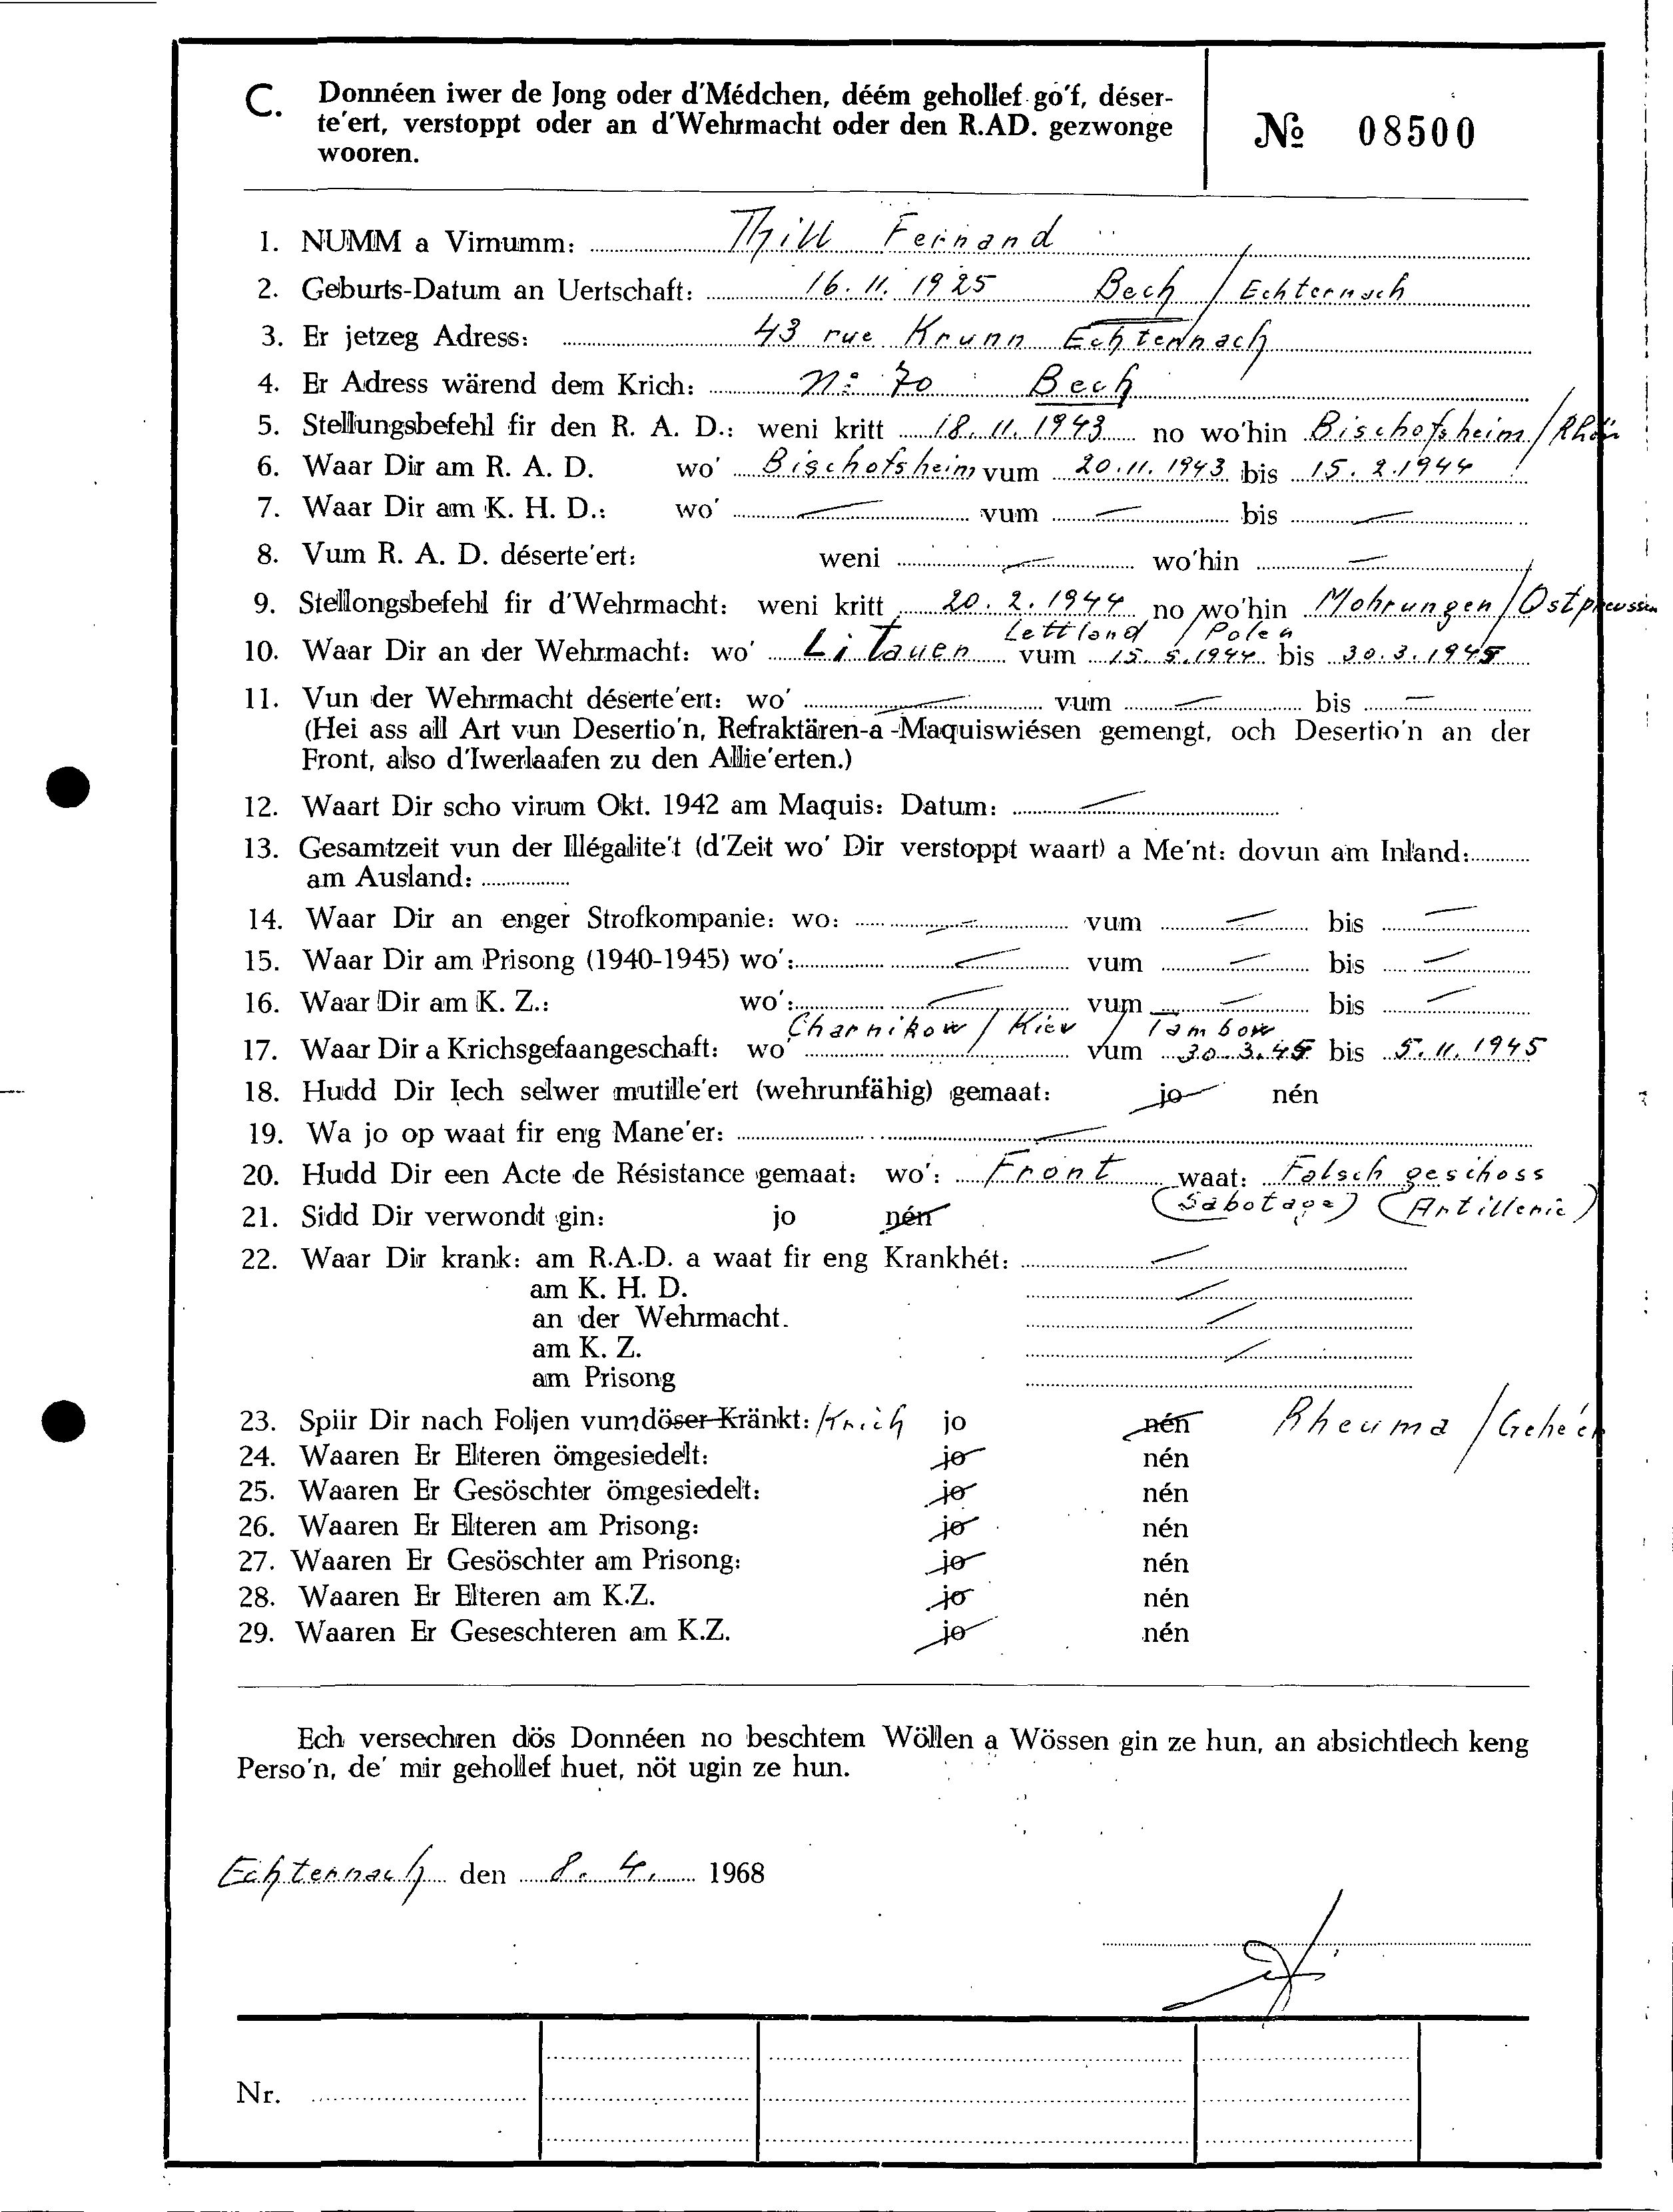 C. Donnéen iwer de Jong oder d'Médchen, déém gehollef go'f, déser-
te'ert, verstoppt oder an d'Wehrmacht oder den R.AD. gezwonge
wooren.
№ 08500
1. NUMM a Virnumm: Thill Fernand
2. Geburts-Datum an Uertschaft: 16. 11. 1925 Bech / Echternach
3. Er jetzeg Adress: 43 rue Krunn Echternach
4. Er Adress wärend dem Krich: N° 70 Bech
5. Stellungsbefehl fir den R. A. D.: weni kritt 18. 11. 1943 no wo'hin Bischofsheim / Rhön
6. Waar Dir am R. A. D. wo' Bischofsheim vum 20. 11. 1943 bis 15. 2. 1944
7. Waar Dir am K. H. D.: wo' — vum — bis —
8. Vum R. A. D. déserte'ert: weni — wo'hin —
9. Stellongsbefehl fir d'Wehrmacht: weni kritt 20. 2. 1944 no wo'hin Mohrungen / Ostpreussen
Lettland / Polen /
10. Waar Dir an der Wehrmacht: wo' Litauen vum 15. 5. 1944 bis 30. 3. 1945
11. Vun der Wehrmacht déserte'ert: wo' — vum — bis —
(Hei ass all Art vun Desertio'n, Refraktären-a -Maquiswiésen gemengt, och Desertio'n an der
Front, also d'Iwerlaafen zu den Allie'erten.)
12. Waart Dir scho virum Okt. 1942 am Maquis: Datum: —
13. Gesamtzeit vun der Illégalite't (d'Zeit wo' Dir verstoppt waart) a Me'nt: dovun am Inland:
am Ausland:
14. Waar Dir an enger Strofkompanie: wo: — vum — bis —
15. Waar Dir am Prisong (1940-1945) wo': — vum — bis —
16. Waar Dir am K. Z.: wo': — vum — bis —
Charnikow / Kiev / Tambow
17. Waar Dir a Krichsgefaangeschaft: wo' vum 30. 3. 45 bis 5. 11. 1945
18. Hudd Dir Iech selwer mutille'ert (wehrunfähig) gemaat: jo nén
19. Wa jo op waat fir eng Mane'er: —
20. Hudd Dir een Acte de Résistance gemaat: wo': Front waat: Falsch geschoss
(Sabotage) (Artillerie)
21. Sidd Dir verwondt gin: jo nén
22. Waar Dir krank: am R.A.D. a waat fir eng Krankhét: —
am K. H. D. —
an der Wehrmacht. —
am K. Z. —
am Prisong
23. Spiir Dir nach Foljen vum döser Kränkt: Krich jo nén Rheuma / Gehéer
24. Waaren Er Elteren ömgesiedelt: jo nén
25. Waaren Er Gesöschter ömgesiedelt: jo nén
26. Waaren Er Elteren am Prisong: jo nén
27. Waaren Er Gesöschter am Prisong: jo nén
28. Waaren Er Elteren am K.Z. jo nén
29. Waaren Er Geseschteren am K.Z. jo nén
Ech versechren dös Donnéen no beschtem Wöllen a Wössen gin ze hun, an absichtlech keng
Perso'n, de' mir gehollef huet, nöt ugin ze hun.
Echternach den 8. 4. 1968
Nr.